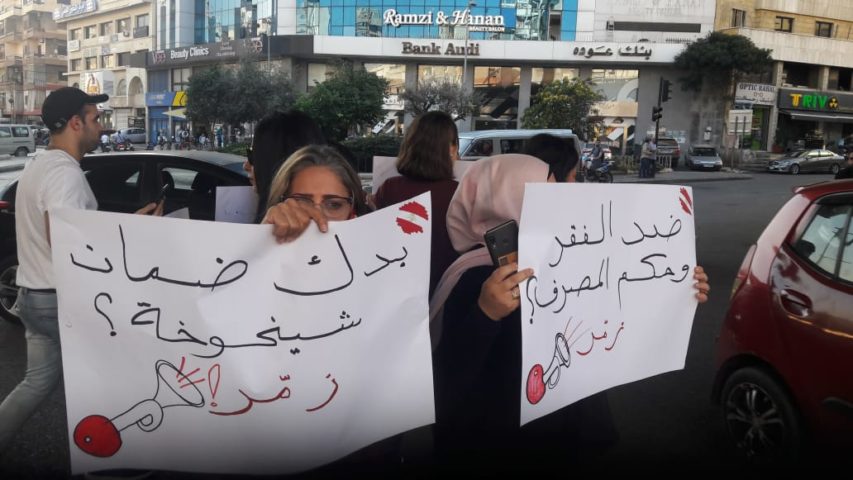 Ramzi & Hanan
BEAUTY SALON
Bank Audi
بنك عوده
Beauty Clinics
OPTIC RABAL
TRIVO
بدك ضمان
شيخوخة؟
زمّر!
ضد الفقر
وحكم المصرف؟
زمّر